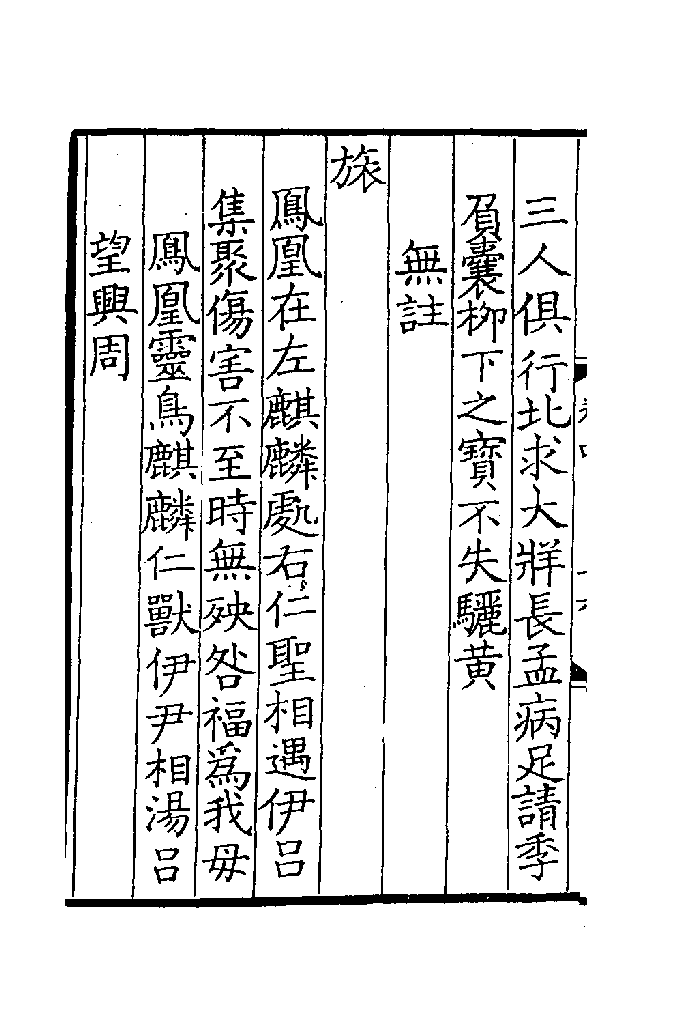 三人俱行北求大牂長孟病足請季
負囊柳下之寶不失驪黄
無註
旅
鳳凰在左麒麟處右仁聖相遇伊吕
集聚傷害不至時無殃咎福爲我母
鳳凰靈鳥麒麟仁獸伊尹相湯吕
望興周